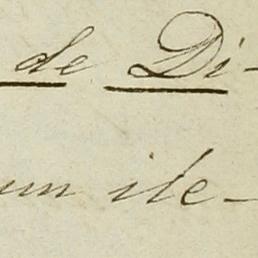 de Di-
um ile-